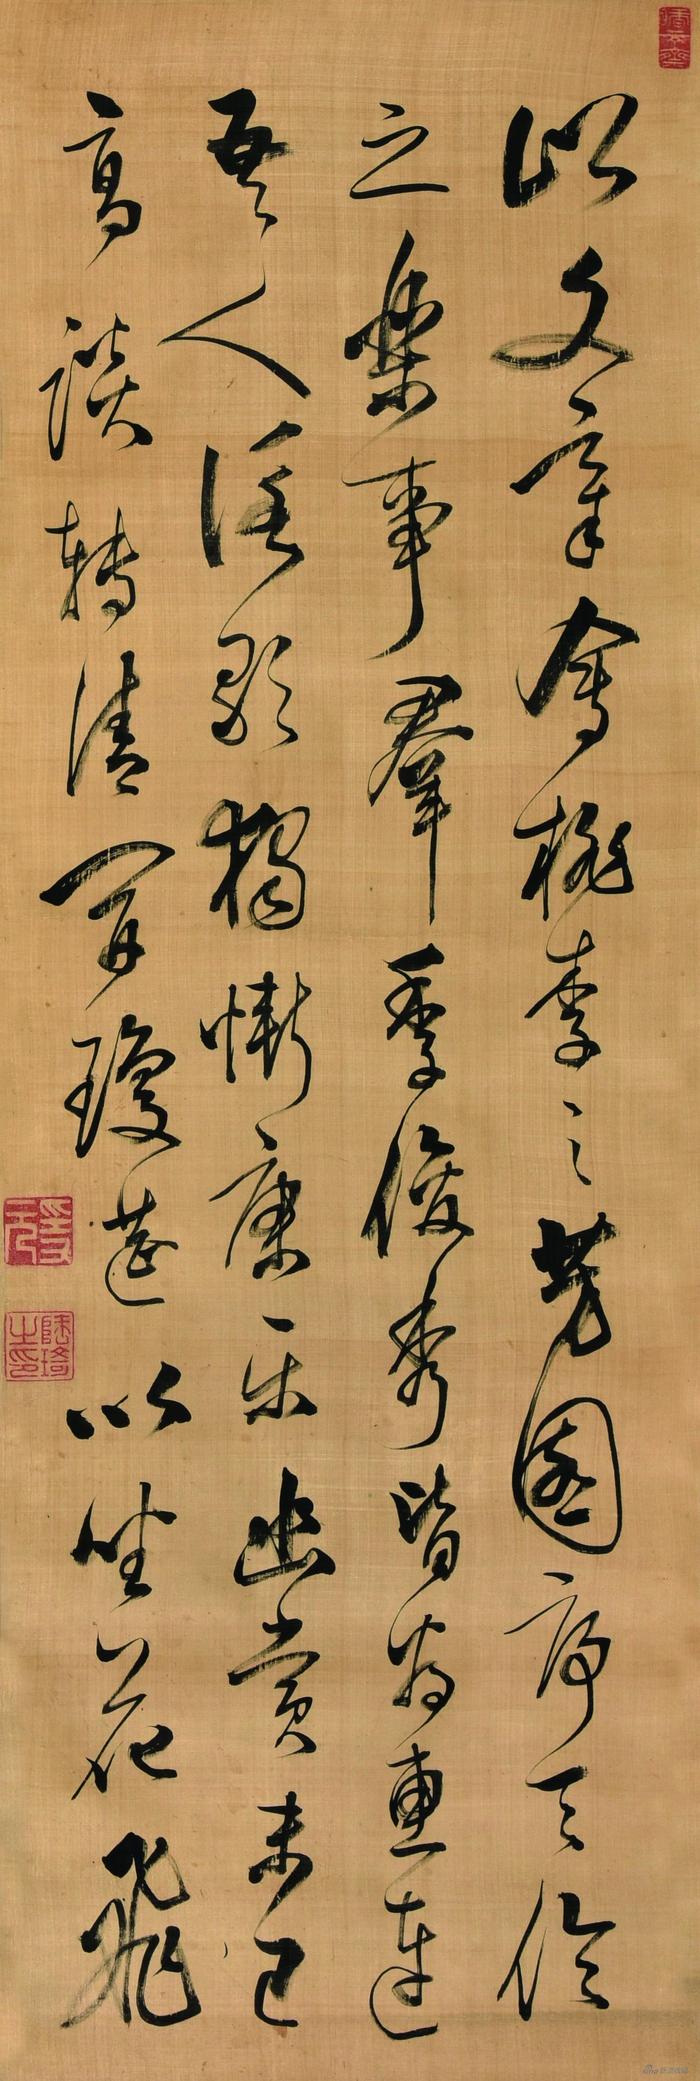 以文章會桃李之芳園序天倫
之樂事羣季俊秀皆為惠連
吾人詠歌獨慚康樂幽賞未已
高談轉清開瓊筵以坐花飛